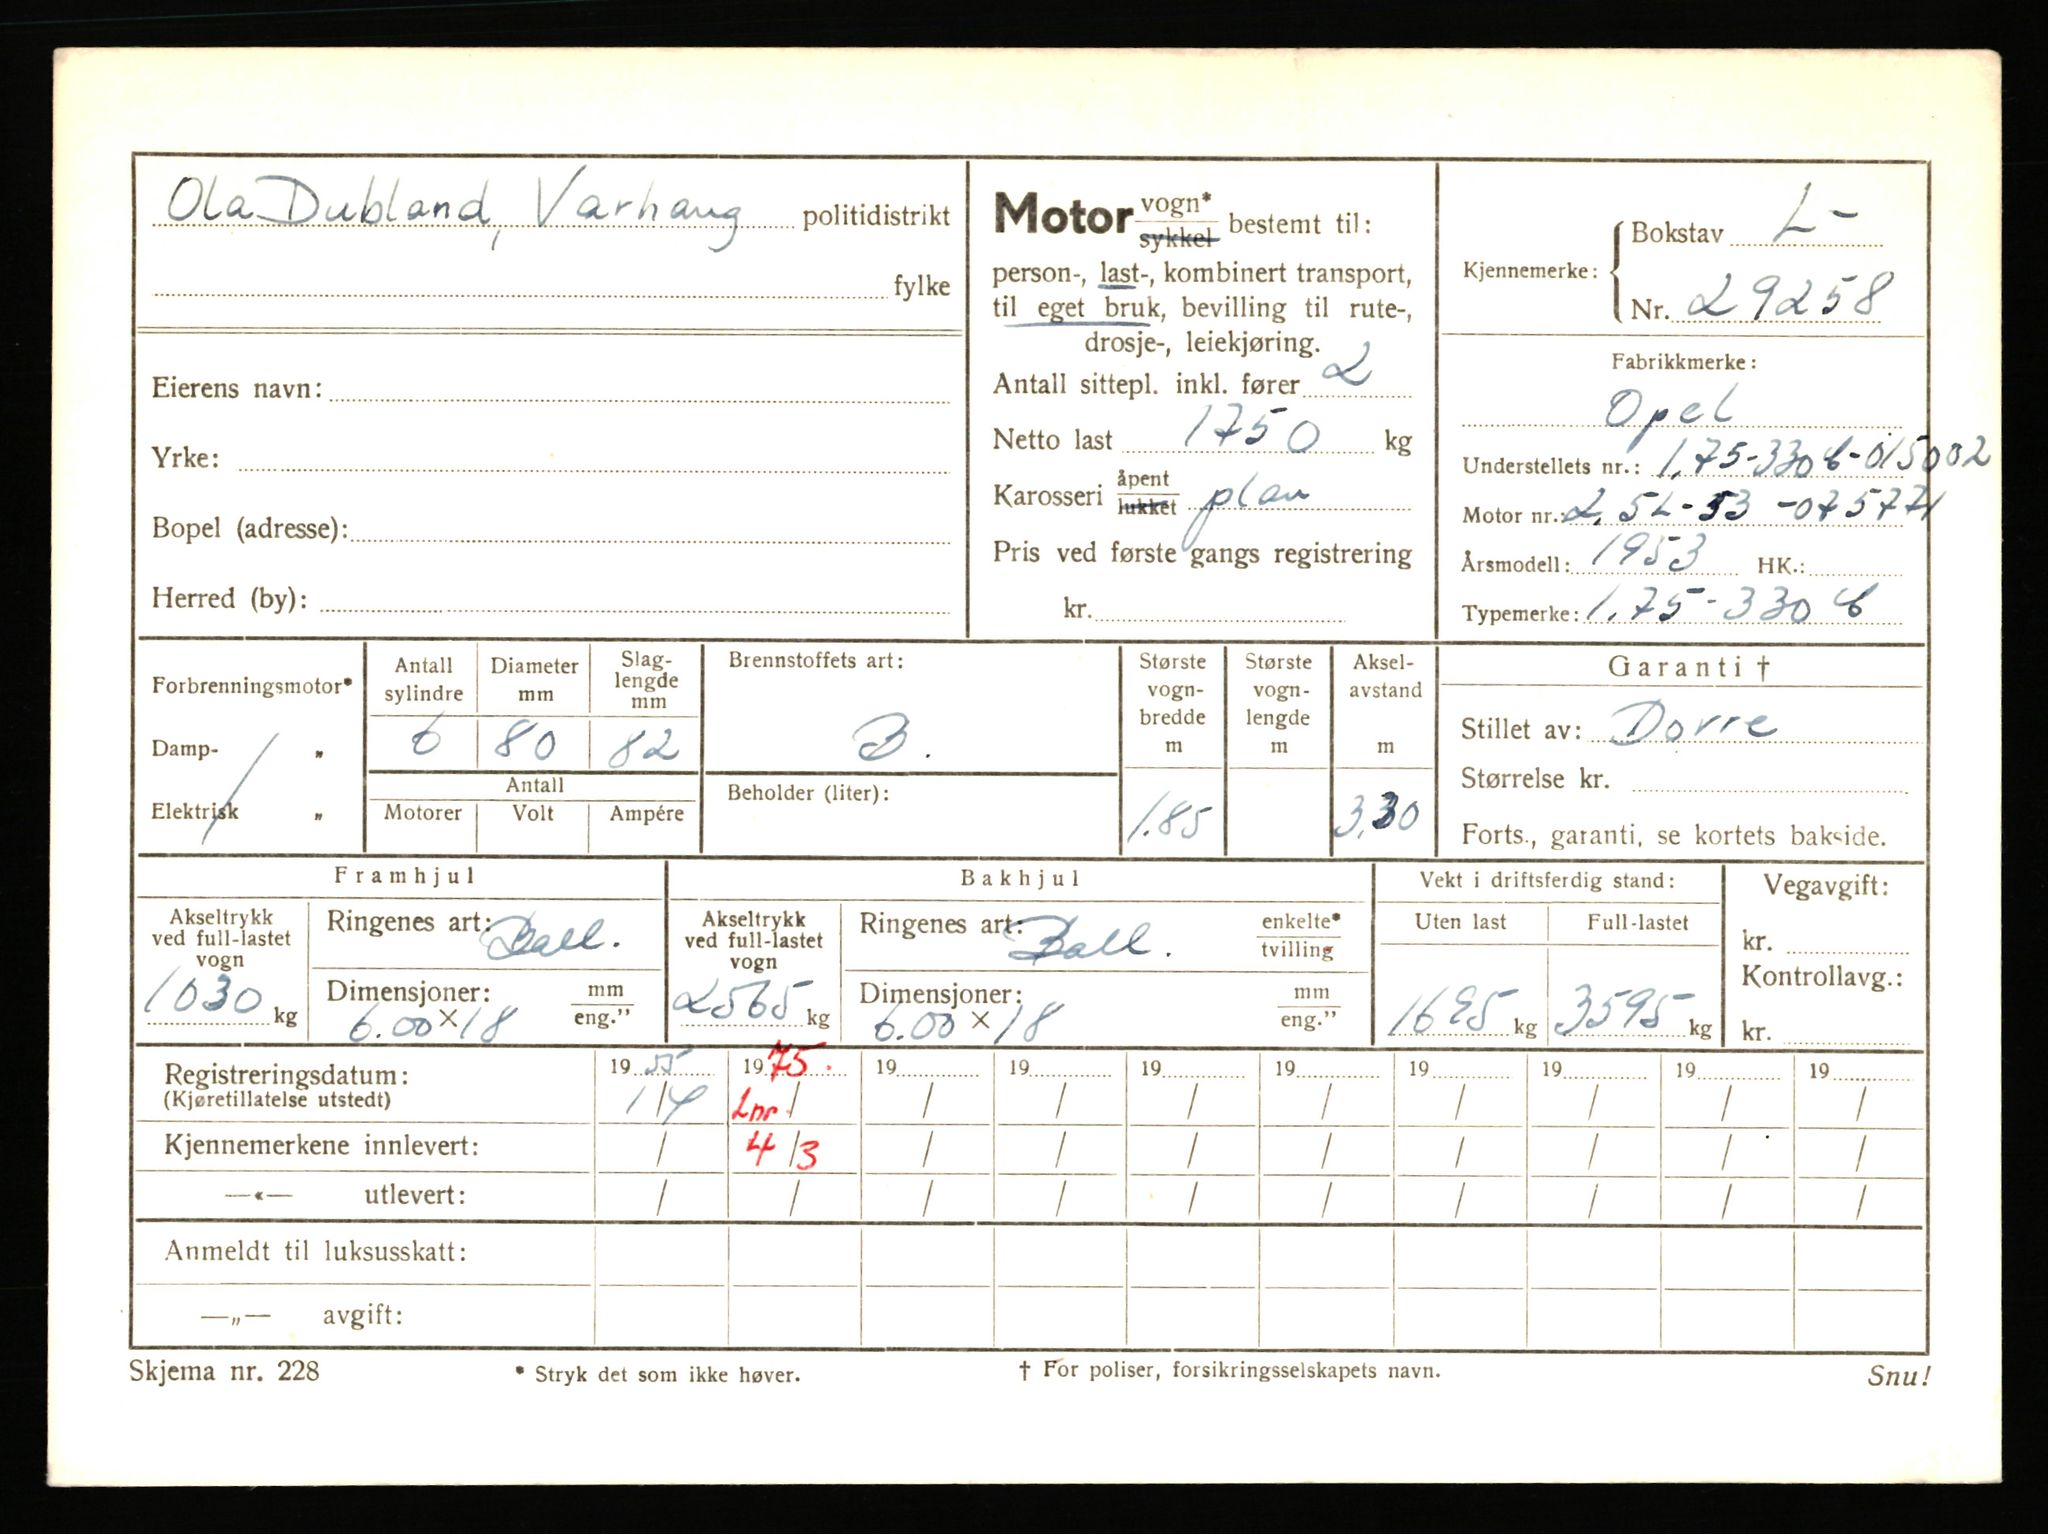 Ola Dubland, Varhaug politidistrikt
fylke
Eierens navn:
Yrke:
Bopel (adresse):
Herred (by):
Motor vogn* sykkel bestemt til:
person-, last-, kombinert transport,
til eget bruk, bevilling til rute-,
drosje-, leiekjøring.
Antall sittepl. inkl. fører 2
Netto last 1750 kg
Karosseri åpent lukket plan
Pris ved første gangs registrering
kr.
Kjennemerke: Bokstav L-
Nr. 29258
Fabrikkmerke:
Opel
Understellets nr.: 1,75-330 -015002
Motor nr.: 2,5L-53-075771
Årsmodell: 1953 HK.:
Typemerke: 1,75-330
Forbrenningsmotor*
Damp- „
Elektrisk „
Antall sylindre Diameter mm Slag-lengde mm
6 80 82
Antall
Motorer Volt Ampére
Brennstoffets art:
B.
Beholder (liter):
Største vogn-bredde m
1.85
Største vogn-lengde m
Aksel-avstand m
3,30
Garanti †
Stillet av: Dovre
Størrelse kr.
Forts., garanti, se kortets bakside.
Framhjul
Akseltrykk ved full-lastet vogn
1030 kg
Ringenes art: Ball.
Dimensjoner: mm eng."
6.00 × 18
Bakhjul
Akseltrykk ved full-lastet vogn
2565 kg
Ringenes art: Ball. enkelte* tvilling
Dimensjoner: mm eng."
6.00 × 18
Vekt i driftsferdig stand:
Uten last Full-lastet
1695 kg 3595 kg
Vegavgift:
kr.
Kontrollavg.:
kr.
Registreringsdatum: 19 55 19 75. 19 19 19 19 19 19 19 19
(Kjøretillatelse utstedt) 1/4 Lnr / / / / / / / / /
Kjennemerkene innlevert: / 4/3 / / / / / / / /
—«— utlevert: / / / / / / / / / /
Anmeldt til luksusskatt:
—„— avgift:
Skjema nr. 228 * Stryk det som ikke høver. † For poliser, forsikringsselskapets navn. Snu!